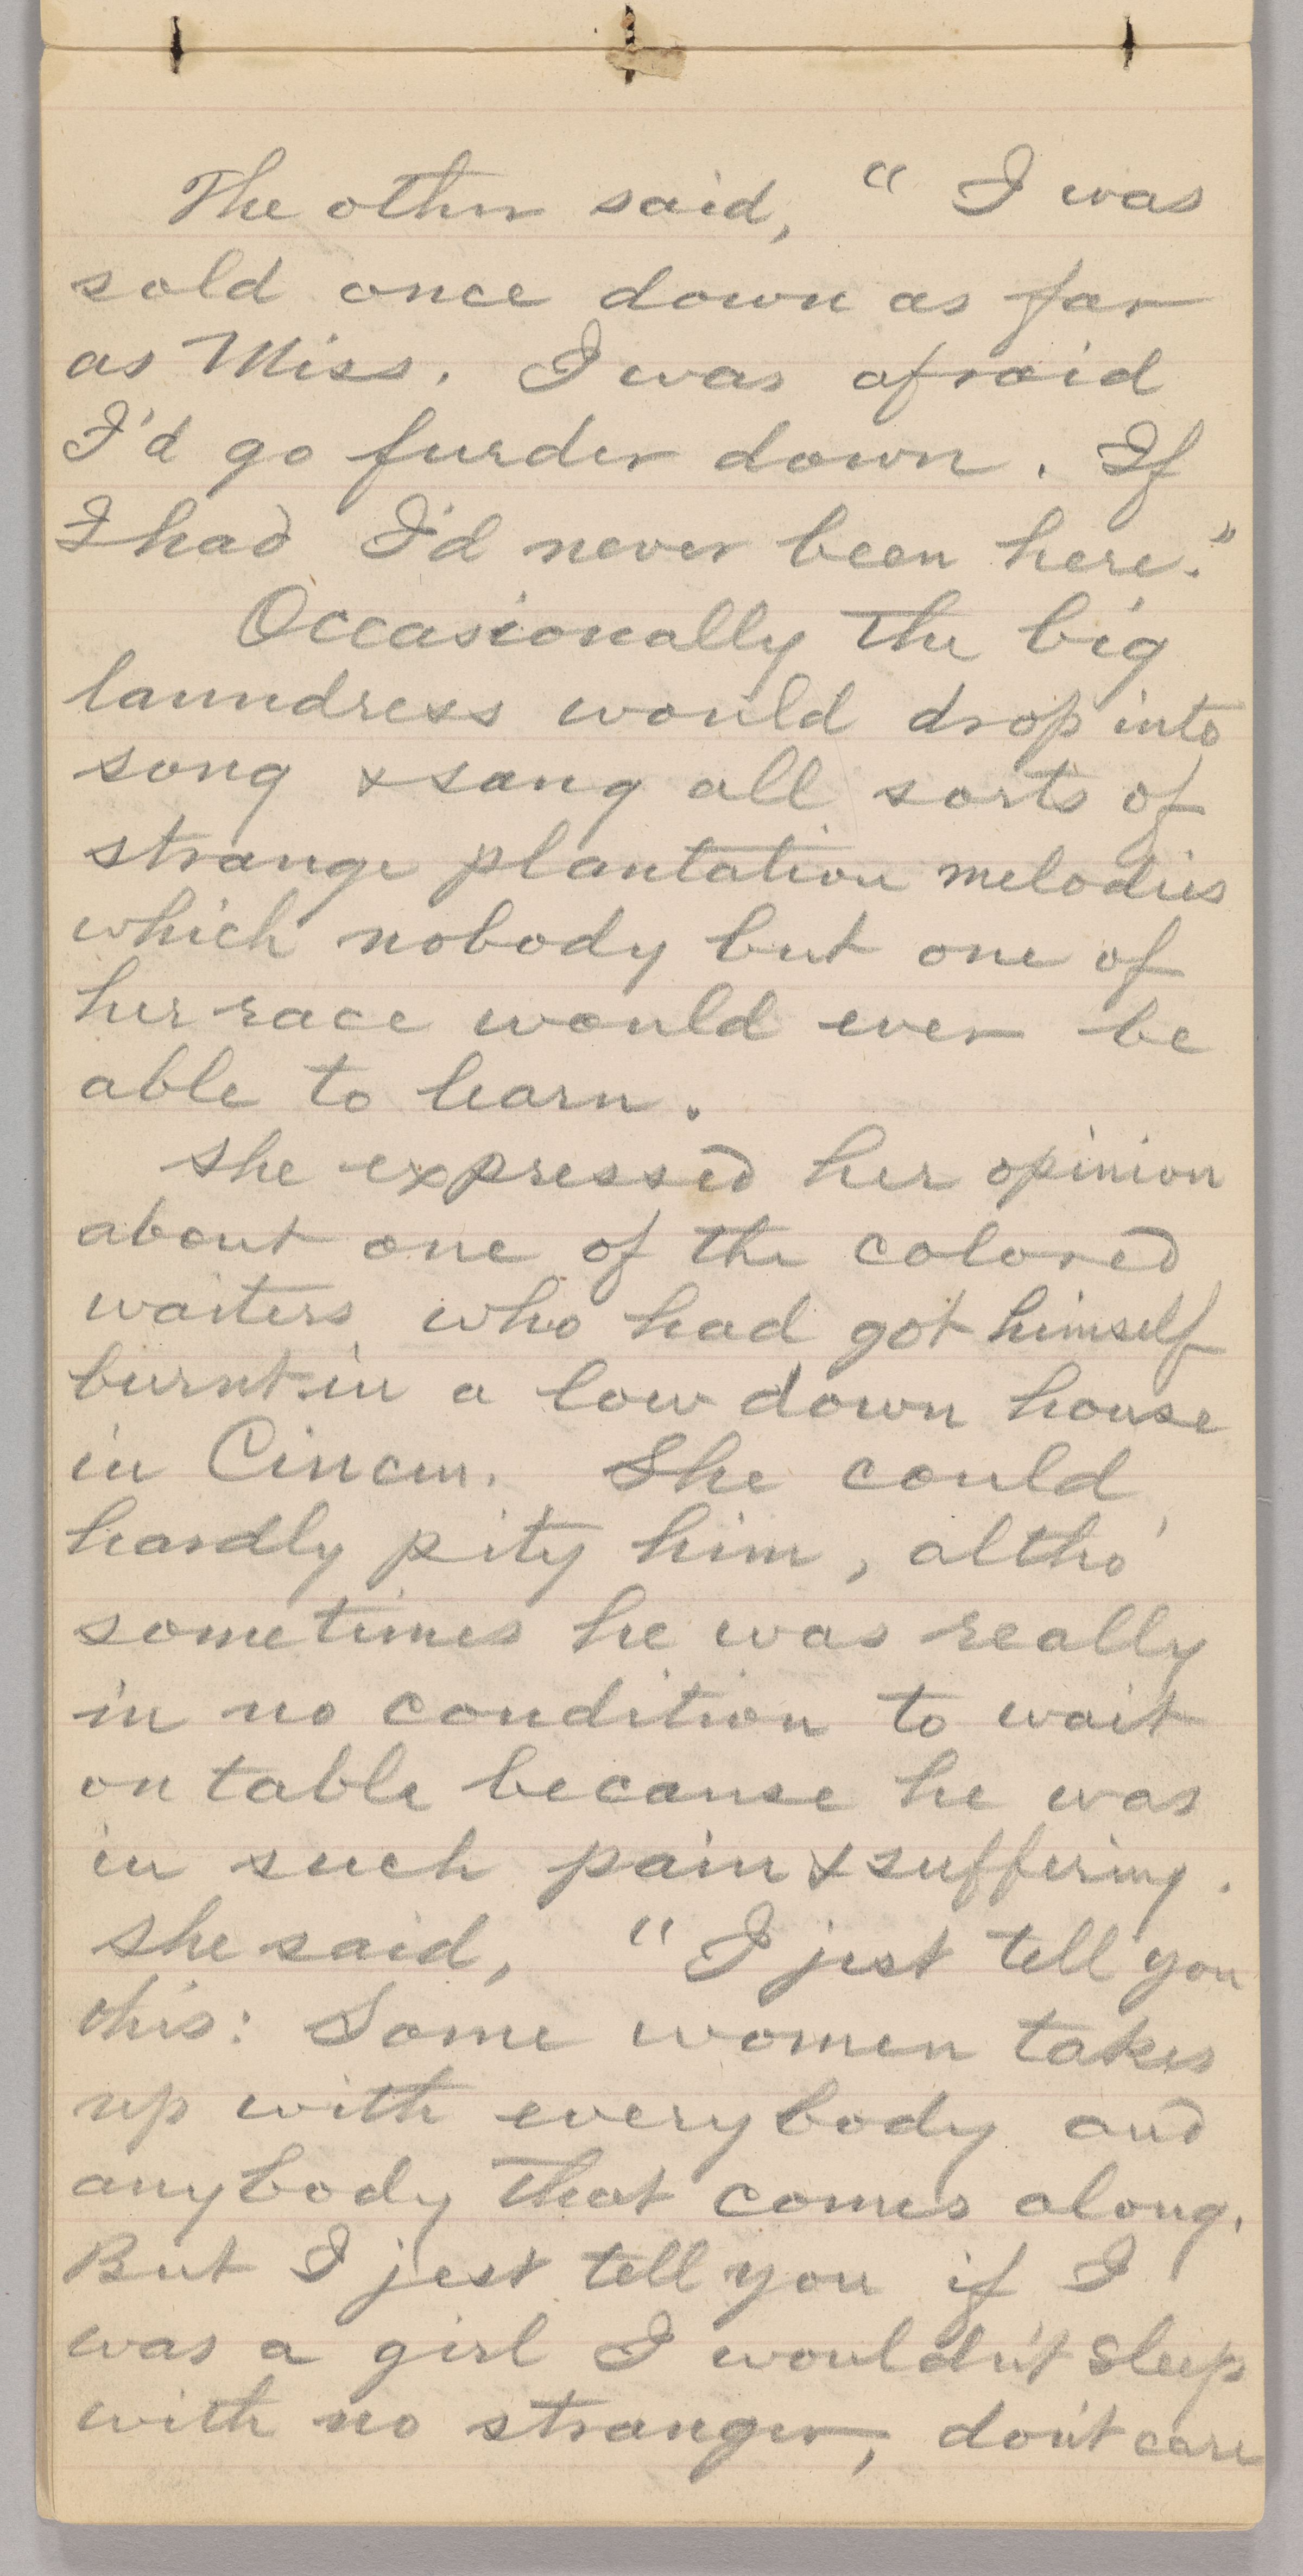 The other said, "I was
sold once down as far
as Miss. I was afraid
I'd go furder down. If
I had I'd never been here."
Occasionally the big
laundress would drop into
song & sang all sorts of
strange plantation melodies
which nobody but one of
her race would ever be
able to learn.
She expressed her opinion
about one of the colored
waiters who had got himself
burnt in a low down house
in Cincin. She could
hardly pity him, altho'
sometimes he was really
in no condition to wait
on table because he was
in such pain & suffering.
She said, "I jest tell you
this: Some women takes
up with everybody and
anybody that comes along.
But I jest tell you if I
was a girl I wouldn't sleep
with no stranger, don't care